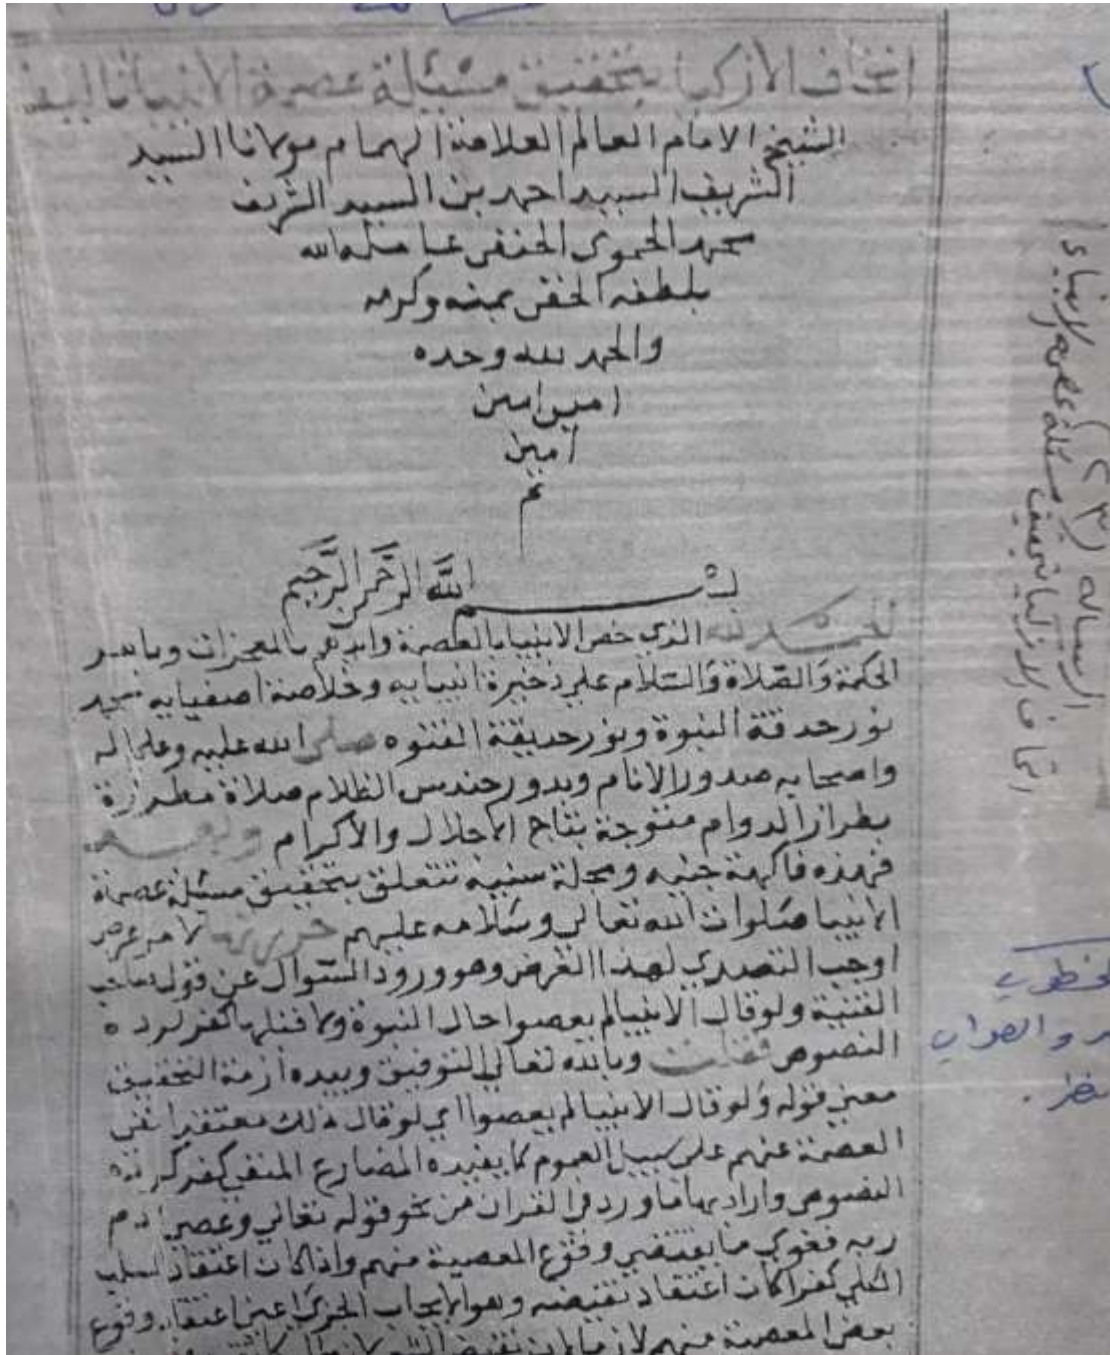 اتحاف الازكيا بتحقيق مسئلة عصمة الانبيا تاليف
الشيخ الامام العالم العلامة الهمام مولانا السيد
الشريف السيد احمد بن السيد الشريف
محمد الحموي الحنفى عامله الله
بلطفه الخفى بمنه وكرمه
والحمد لله وحده
امين امين
امين
تم
بسم الله الرحمن الرحيم
الحمد لله الذي خص الانبيا بالعصمة وايدهم بالمعجزات
الحكمة والصلاة والسلام على ذخيرة انبيايه وخلاصة اصفيايه محمد
نور حدقة النبوة ونور حديقة الفتوه صلى الله عليه وعلى اله
واصحابه صدور الانام وبدور حندس الظلام صلاة مطرزة
بطراز الدوام متوجة بتاج الاجلال والاكرام وبعد
فهذه فاكهة جنيه ومجلة سنيه تتعلق بتحقيق مسئلة عصمة
الانبيا صلوات الله تعالى وسلامه عليهم حررتها لامر عرض
اوجب التصدي لهذا الغرض وهو ورود السوال عن قول صاحب
القنية ولو قال الانبيا لم يعصوا حال النبوة ولا قبلها كفر لرده
النصوص فقلت وبالله تعالى التوفيق وبيده ازمة التحقيق
معنى قوله ولو قال الانبيا لم يعصوا اي لو قال ذلك معتقدا نفى
العصمة عنهم على سبيل العموم كما يفيده المضارع المنفى كفر لرده
النصوص واراد بها ما ورد فى القران من نحو قوله تعالى وعصى ادم
ربه فغوى مما يقتضي وقوع المعصية منهم واذا كان اعتقاد السلب
الكلي كفرا كان اعتقاد نقيضه وهو الايجاب الجزئ اعنى اعتقاد وقوع
بعض المعصية منهم لازما لان نقيض
الرساله (٢٣)
اتحاف الازكيا بتحقيق مسئلة عصمة الانبياء
والصواب